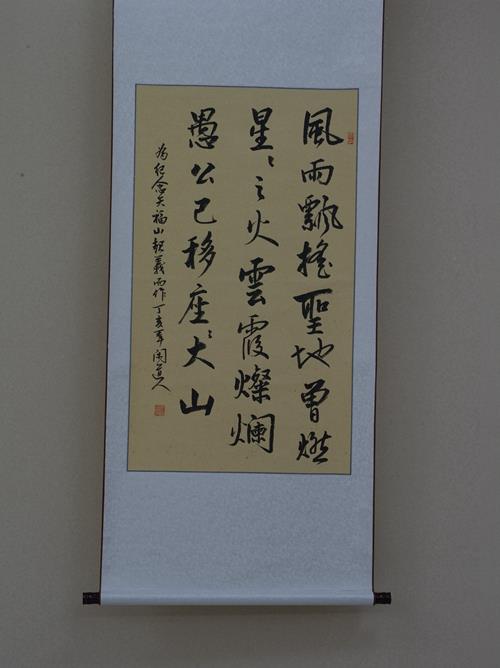 風雨飄搖聖地曾燃
星〻之火雲霞燦爛
愚公已移座〻大山
為紀念天福山起義而作丁亥年闲道人